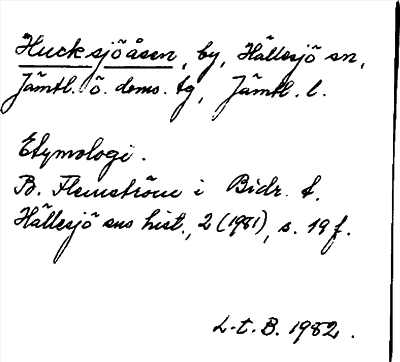 Hucksjöåsen, by, Hällesjö sn,
Jämtl. ö. doms. tg, Jämtl. l.
Etymologi.
B. Flemström i Bidr. t.
Hällesjö sns hist., 2 (1981), s. 19 f.
L-t. B. 1982.